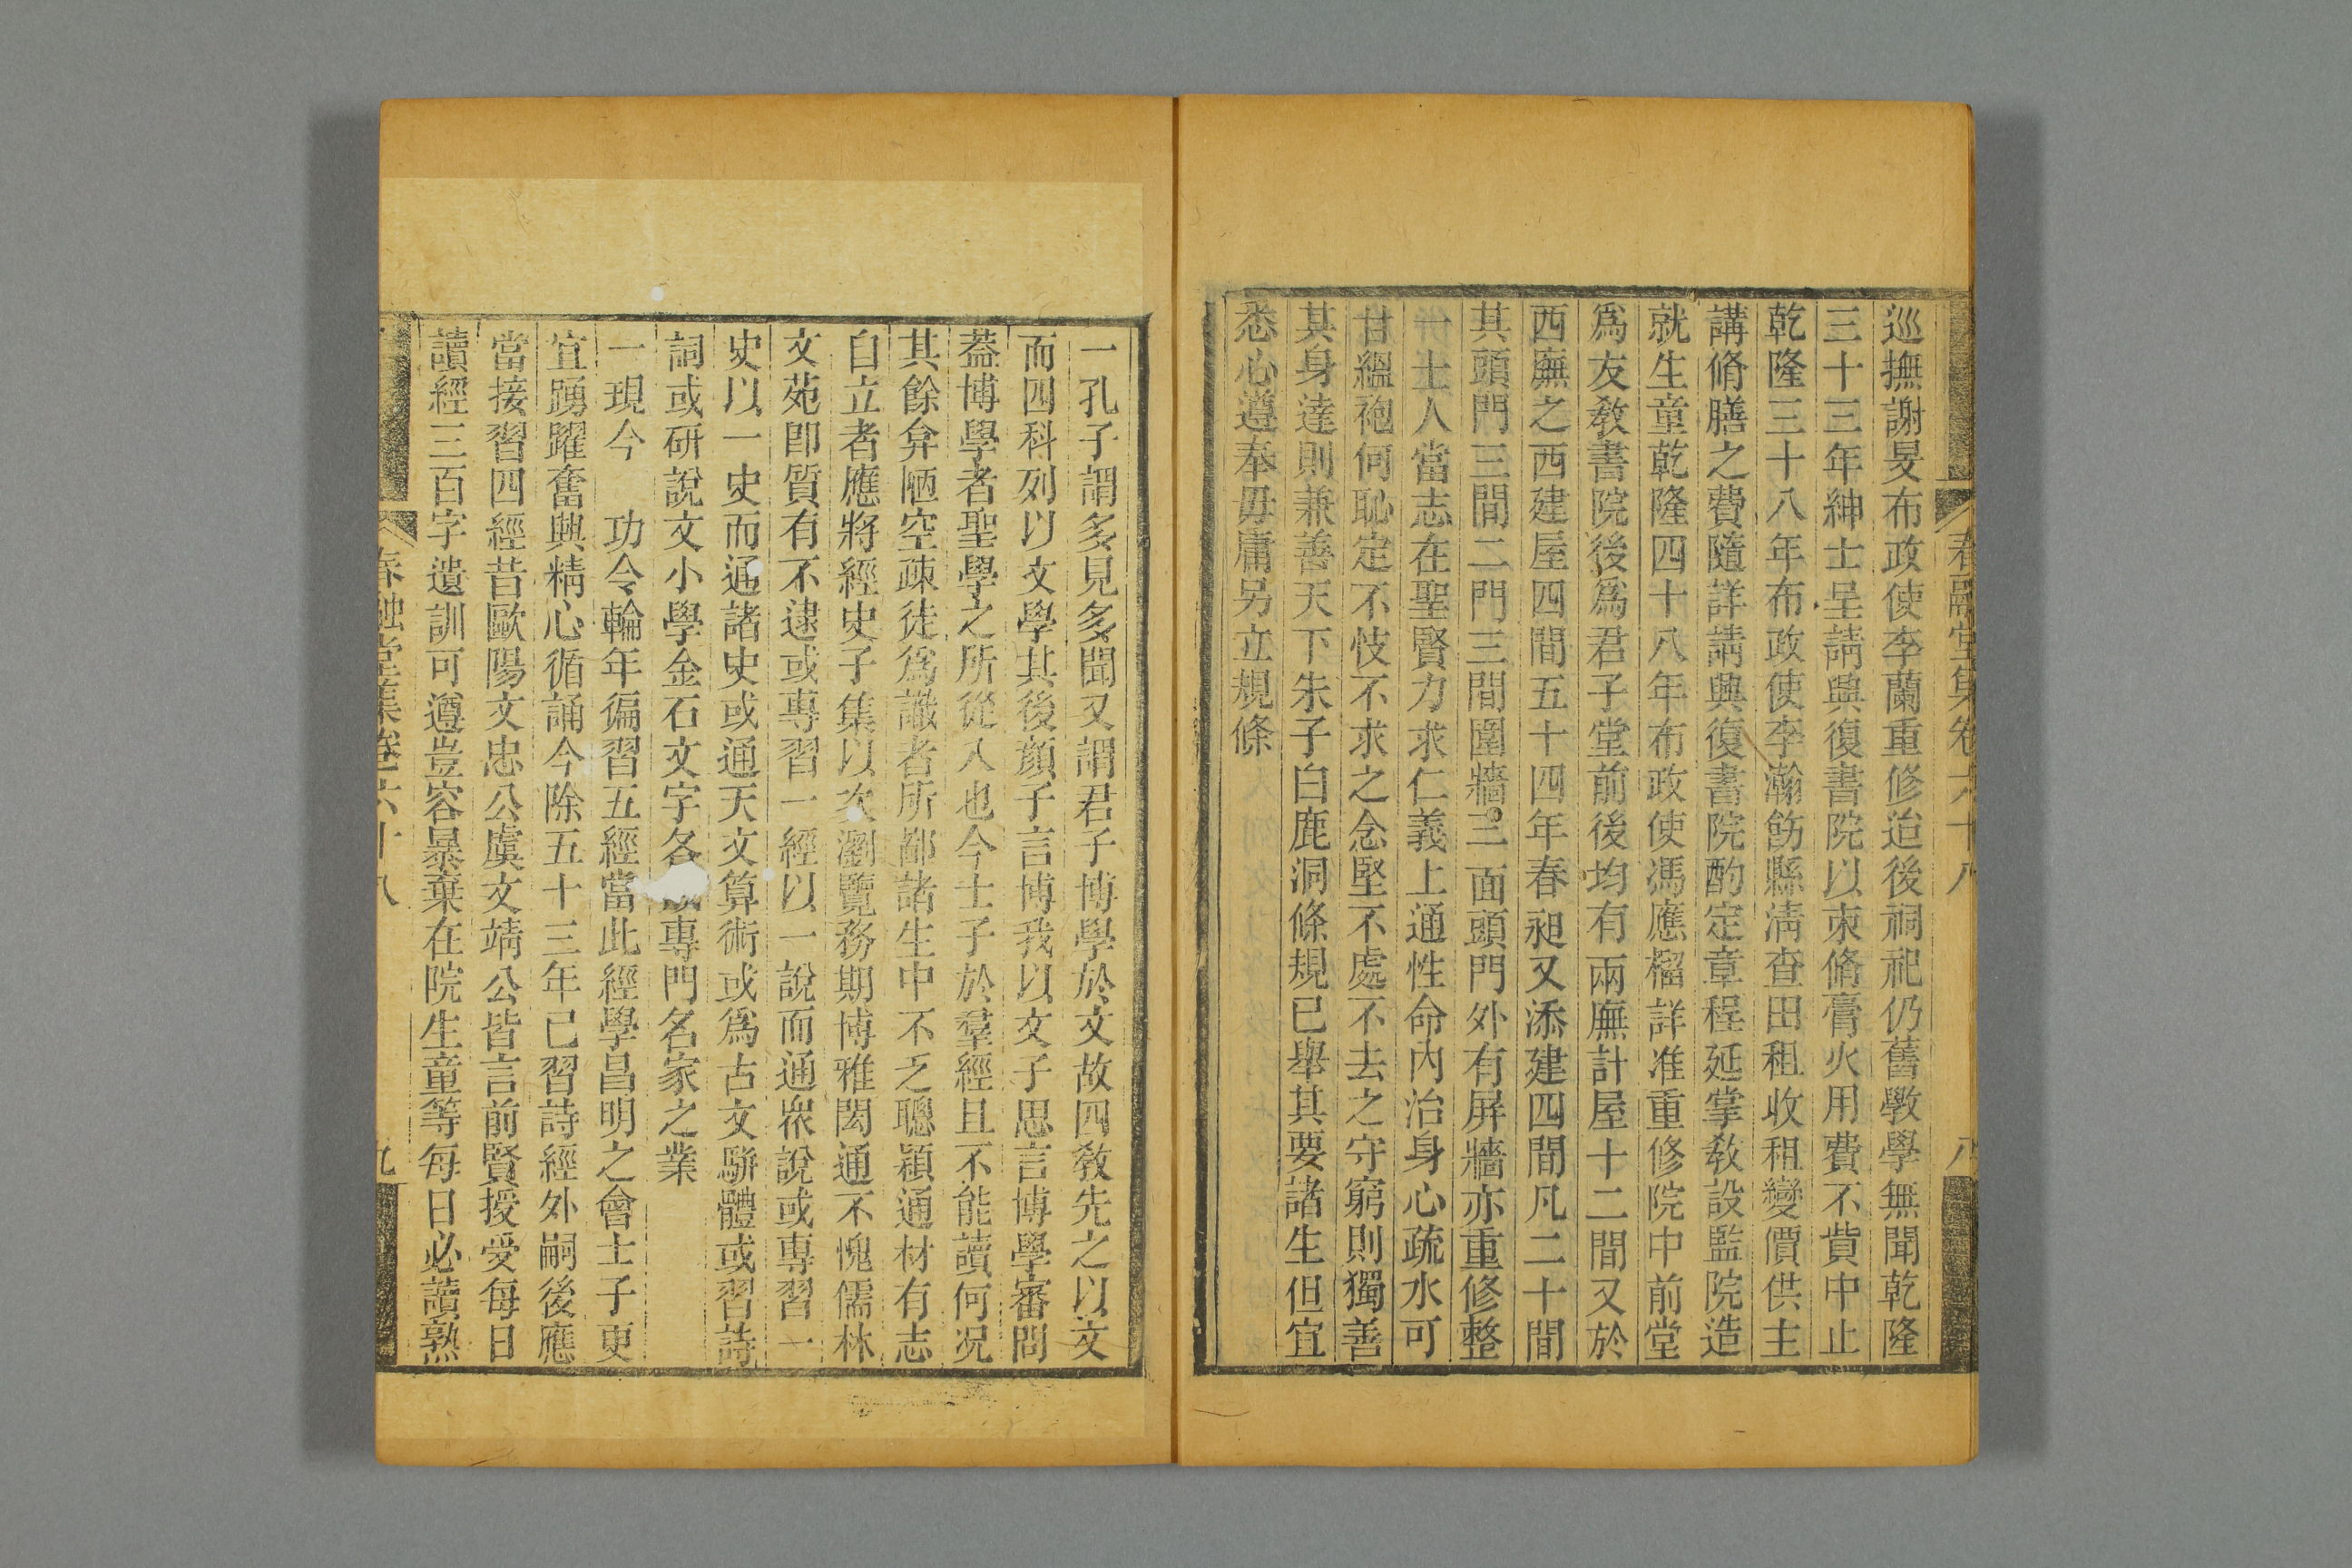 春融堂集卷六十八
八
巡撫謝旻布政使李蘭重修迨後祠祀仍舊斆學無聞乾隆
三十三年紳士呈請興復書院以束脩膏火用費不貲中止
乾隆三十八年布政使李瀚飭縣淸查田租收租變價供主
講脩膳之費隨詳請興復書院酌定章程延掌敎設監院造
就生童乾隆四十八年布政使馮應榴詳准重修院中前堂
爲友敎書院後爲君子堂前後均有兩廡計屋十二間又於
西廡之西建屋四間五十四年春昶又添建四間凡二十間
其頭門三間二門三間圍牆三面頭門外有屛牆亦重修整
一士人當志在聖賢力求仁義上通性命內治身心疏水可
甘縕袍何恥定不忮不求之念堅不處不去之守窮則獨善
其身達則兼善天下朱子白鹿洞條規已舉其要諸生但宜
悉心遵奉毋庸另立規條
一孔子謂多見多聞又謂君子博學於文故四敎先之以文
而四科列以文學其後顏子言博我以文子思言博學審問
葢博學者聖學之所從入也今士子於羣經且不能讀何况
其餘弇陋空疎徒爲識者所鄙諸生中不乏聰穎通材有志
自立者應將經史子集以次瀏覽務期博雅閎通不愧儒林
文苑卽質有不逮或專習一經以一說而通衆說或專習一
史以一史而通諸史或通天文算術或爲古文駢體或習詩
詞或硏說文小學金石文字各專門名家之業
一現今　功令輪年徧習五經當此經學昌明之會士子更
宜踴躍奮興精心循誦今除五十三年已習詩經外嗣後應
當接習四經昔歐陽文忠公虞文靖公皆言前賢授受每日
讀經三百字遺訓可遵豈容暴棄在院生童等每日必讀熟
春融堂集卷六十八
九